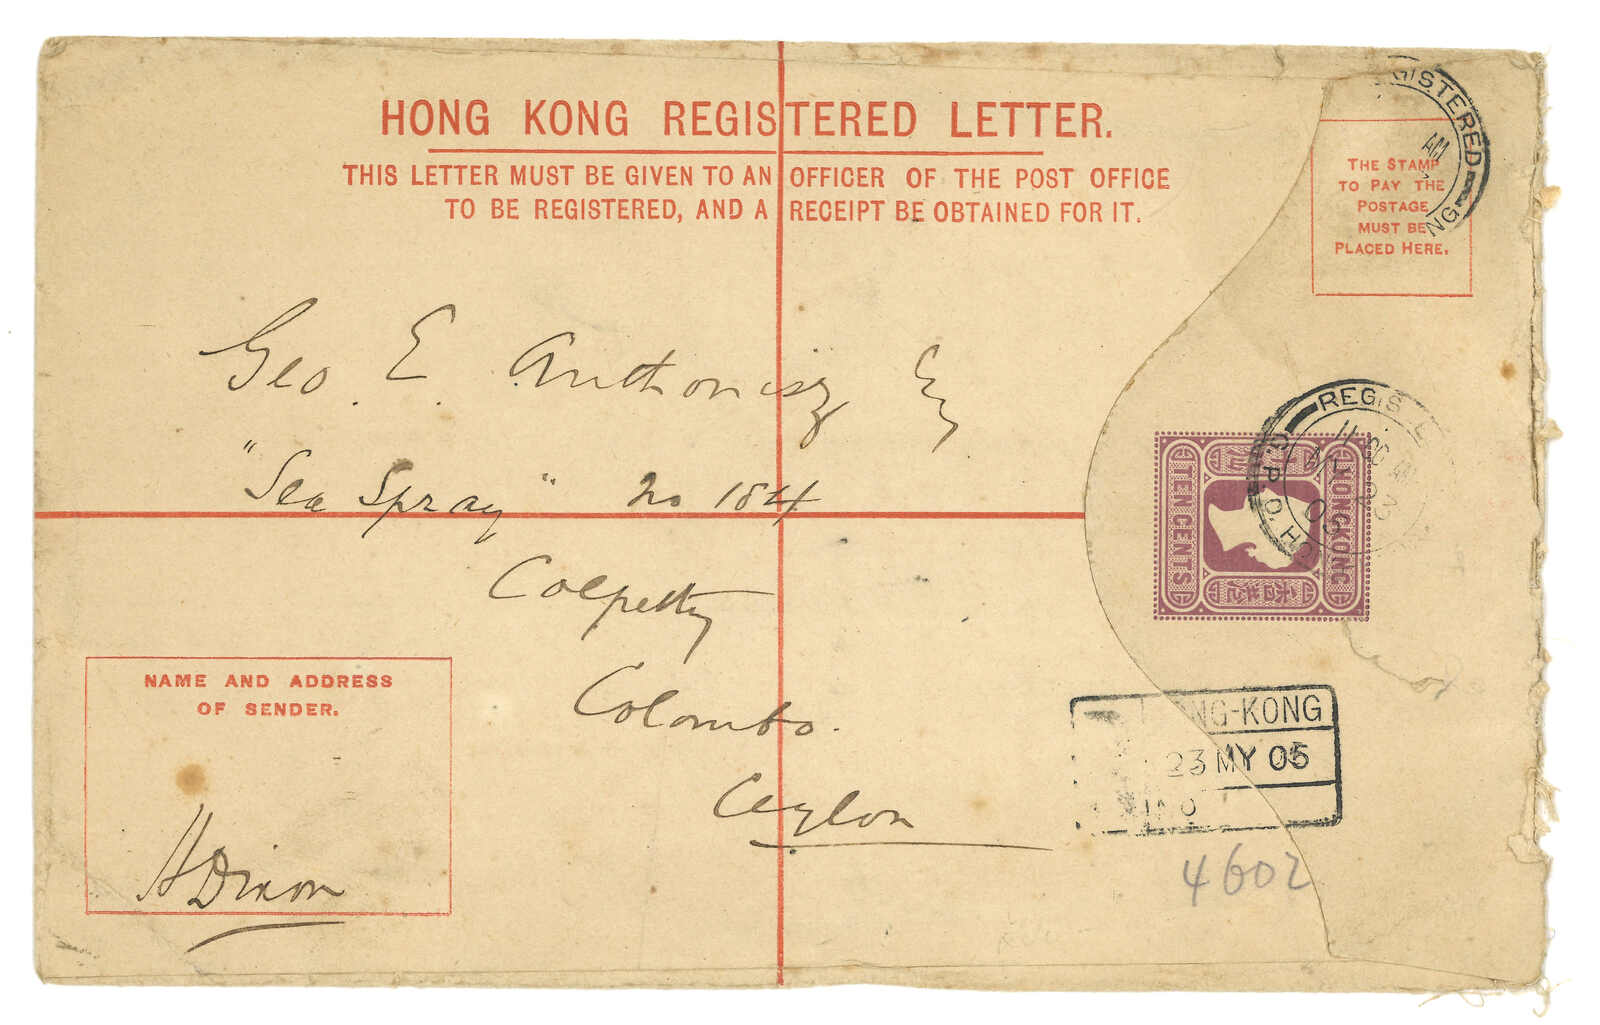 HONG KONG REGISTERED LETTER.
THIS LETTER MUST BE GIVEN TO AN OFFICER OF THE POST OFFICE
TO BE REGISTERED, AND A RECEIPT BE OBTAINED FOR IT.
GISTERED
AM
NG
THE STAMP
TO PAY THE
POSTAGE
MUST BE
PLACED HERE.
Geo. E. Anthonisz Esq
"Sea Spray" No 184
Colpetty
Colombo.
Ceylon
REGIS E
11 AM
MY 23
05
G.P.O. HO
HONGKONG
TEN CENTS
NAME AND ADDRESS
OF SENDER.
H Dixon
HONG-KONG
23 MY 05
No
4602